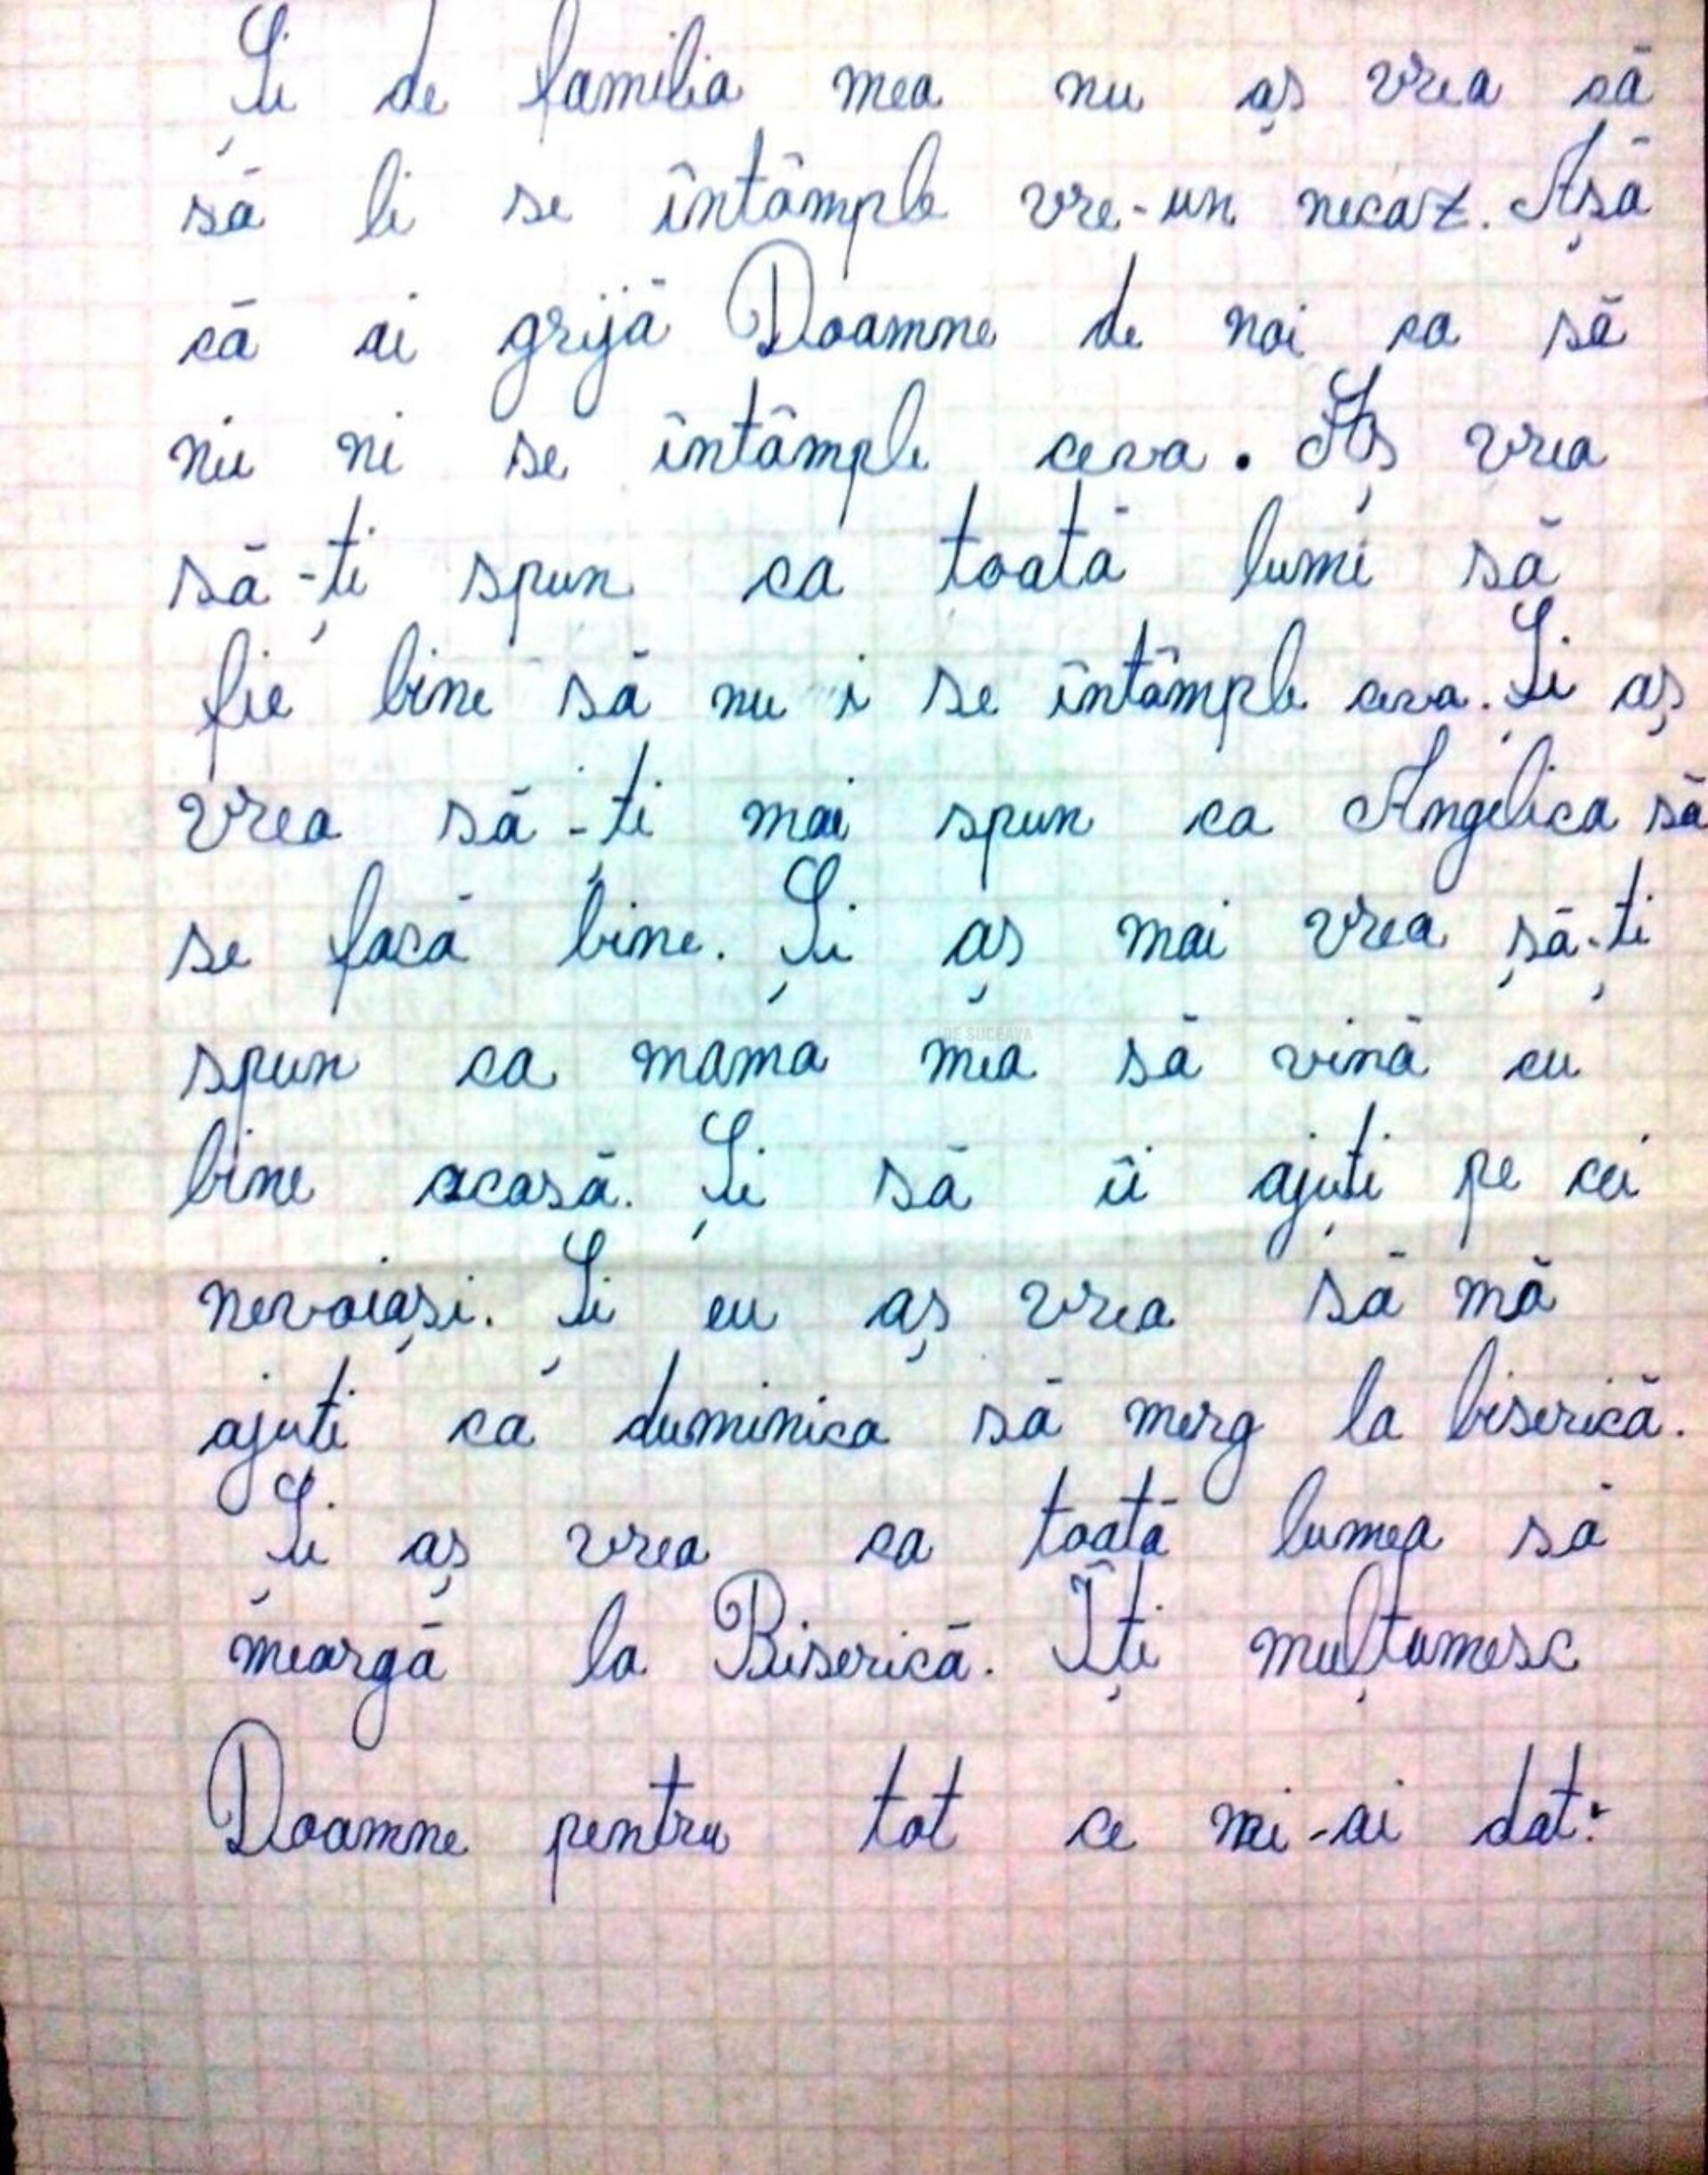 Și de familia mea nu aș vrea să
să li se întâmple vre-un necaz. Așă
că ai grijă Doamne de noi ca să
nu ni se întâmple ceva. Aș vrea
să-ți spun ca toată lumi să
fie bine să nu i se întâmple ceva. Și aș
vrea să-ți mai spun ca Angelica să
se facă bine. Și aș mai vrea șă-ți
spun ca mama mea să vină cu
bine acasă. Și să îi ajuți pe cei
nevoiași. Și eu aș vrea să mă
ajuti ca duminica să merg la biserică.
Și aș vrea ca toată lumea să
meargă la Biserică. Îți mulțumesc
Doamne pentru tot ce mi-ai dat.
DE SUCEAVA